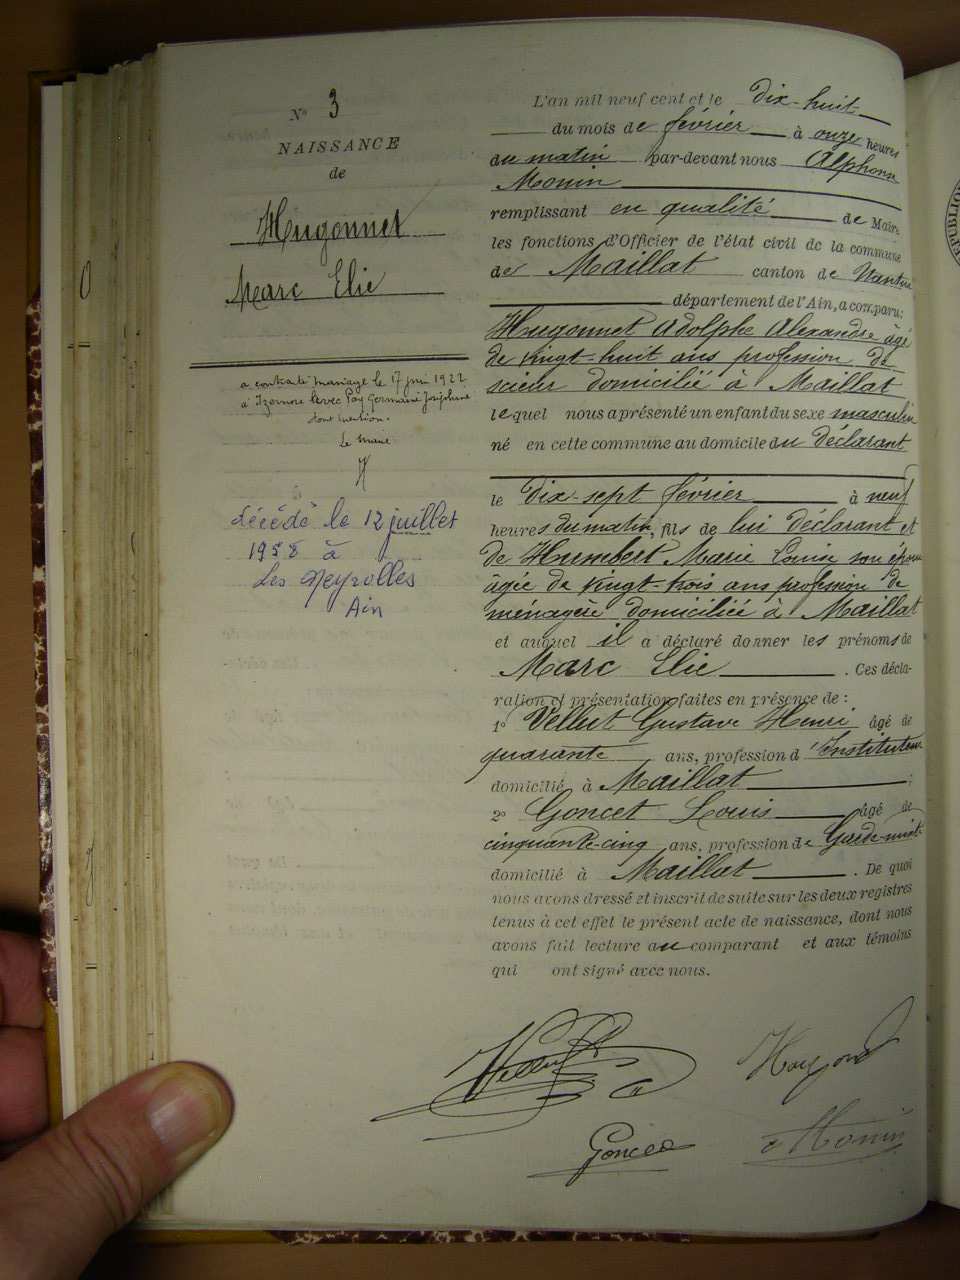 N° 3
NAISSANCE
de
Hugonnet
Marc Elie
a contracté mariage le 17 juin 1922
à Izernore avec Pay Germaine Joséphine
dont mention.
Le Maire
décédé le 12 juillet
1958 à
Les Neyrolles
Ain
L'an mil neuf cent et le dix-huit
du mois de février à onze heures
du matin par-devant nous Alphonse
Monin
remplissant en qualité de Maire
les fonctions d'Officier de l'état civil de la commune
de Maillat canton de Nantua
département de l'Ain, a comparu:
Hugonnet Adolphe Alexandre âgé
de vingt-huit ans profession de
scieur domicilié à Maillat
lequel nous a présenté un enfant du sexe masculin
né en cette commune au domicile du déclarant
le dix-sept février à neuf
heures du matin, fils de lui déclarant et
de Humbert Marie Louise son épouse
âgée de vingt-trois ans profession de
ménagère domiciliée à Maillat
et auquel il a déclaré donner les prénoms de
Marc Elie . Ces décla-
ration et présentation faites en présence de :
1° Vellut Gustave Henri âgé de
quarante ans, profession d'Instituteur
domicilié à Maillat ;
2° Goncet Louis âgé de
cinquante-cinq ans, profession de Garde-mist
domicilié à Maillat . De quoi
nous avons dressé et inscrit de suite sur les deux registres
tenus à cet effet le présent acte de naissance, dont nous
avons fait lecture au comparant et aux témoins
qui ont signé avec nous.
Vellut
Hugonnet
Goncet
Monin